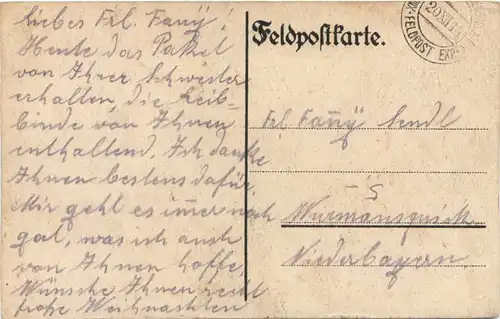 liebes Frl. Fanÿ!
Heute das Paket
von Ihrer Schwester
erhalten, die Leib-
binde von Ihnen
enthaltend. Ich danke
Ihnen bestens dafür.
Mir geht es im̅er noch
gut, was ich auch
von Ihnen hoffe,
Wünsche Ihnen recht
frohe Weihnachten
Feldpostkarte.
Frl. Fan̅ÿ Sendl
Wurmansquick
Niederbayern
20 XII 1
FELDPOST EXP